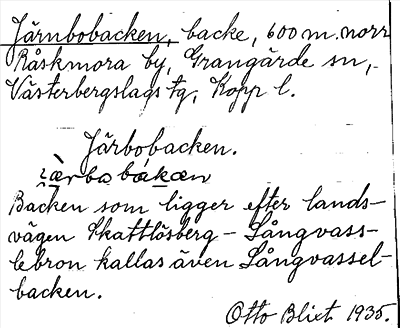 Järnbobacken, backe, 600 m. norr
Råskmora by, Grangärde sn,
Västerbergslags tg, Kopp l.
Järbobacken.
Backen som ligger efter lands-
vägen Skattlösberg - Långvass-
lebron kallas även Långvassel-
backen.
Otto Blixt 1935.